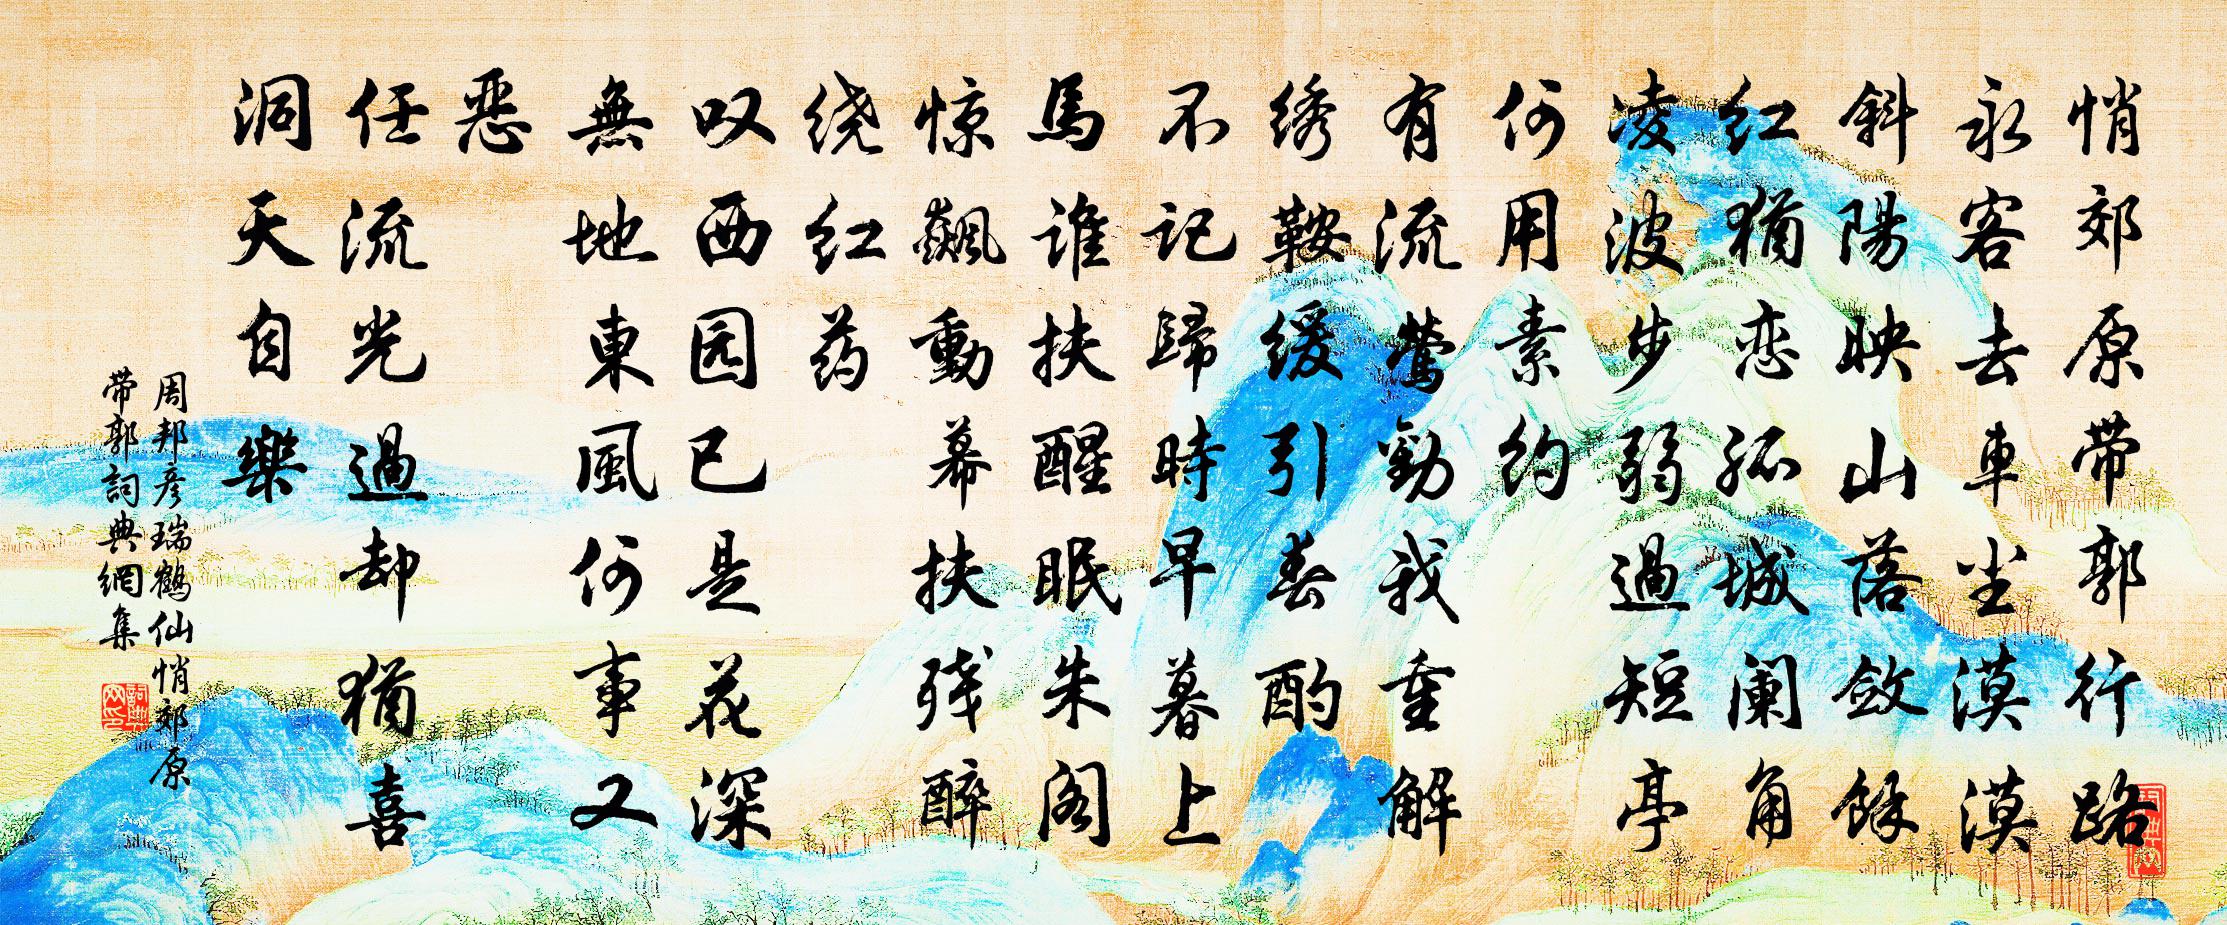 悄郊原带郭行路
永客去車尘漠漠
斜陽映山落斂餘
红猶恋孤城阑角
凌波步弱過短亭
何用素约
有流莺勸我重解
绣鞍缓引春酌
不记歸時早暮上
馬谁扶醒眠朱阁
惊飙動幕扶残醉
绕红药
叹西园已是花深
無地東風何事又
恶
任流光過却猶喜
洞天自樂
周邦彦瑞鶴仙悄郊原
带郭詞典網集